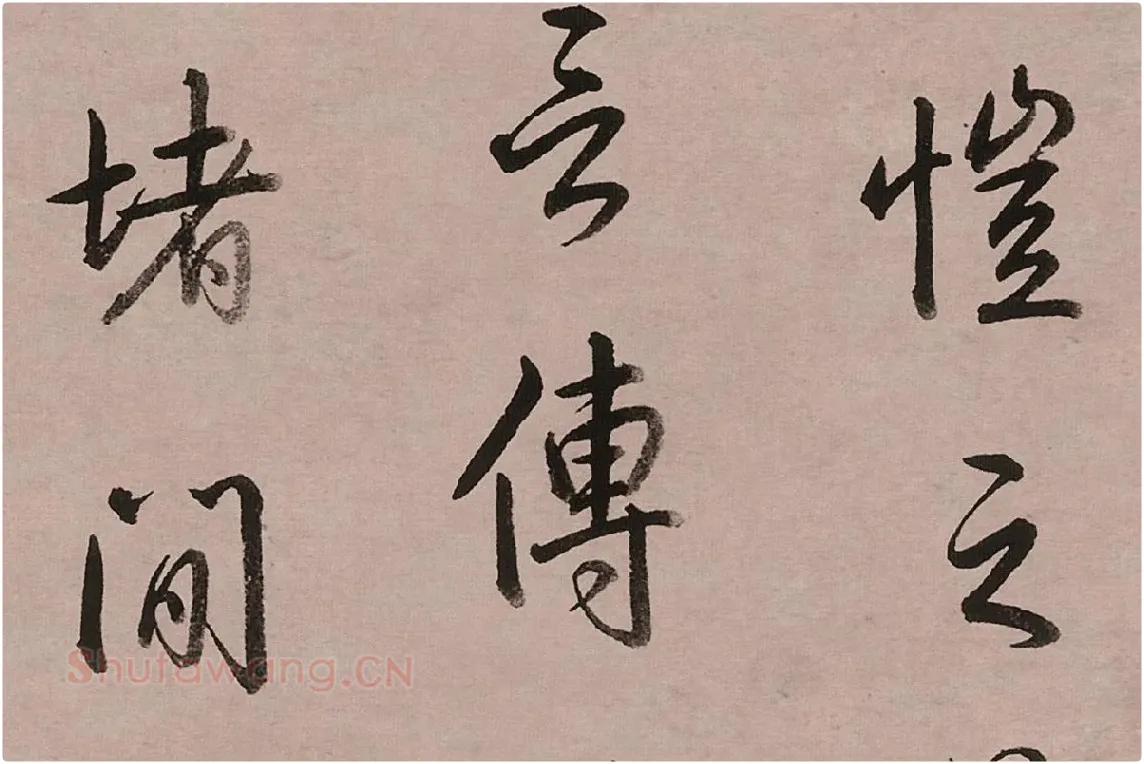 愷之
云傳
堵間
Shufawang.CN